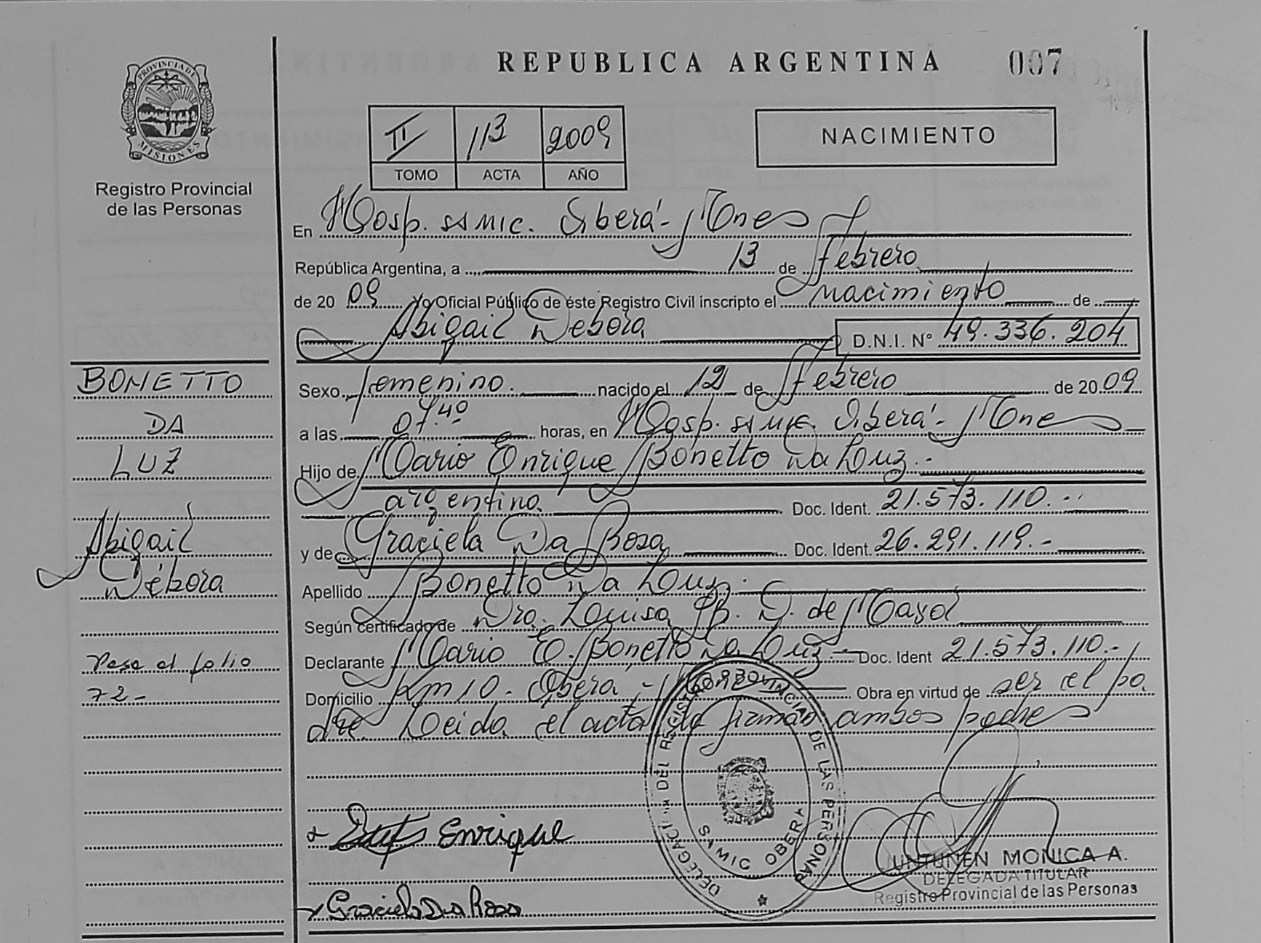 REPUBLICA ARGENTINA 007
PROVINCIA DE MISIONES
Registro Provincial
de las Personas
II 113 2009
TOMO ACTA AÑO
NACIMIENTO
En Hosp. SAMIC. Oberá - Mnes
República Argentina, a 13 de Febrero
de 20 09 Yo Oficial Público de éste Registro Civil inscripto el nacimiento de
Abigail Debora D.N.I. N° 49.336.204
Sexo femenino. nacido el 12 de Febrero de 20 09
a las 07.40 horas, en Hosp. SAMIC. Oberá - Mnes
Hijo de Mario Enrique Bonetto Da Luz.-
argentino Doc. Ident. 21.573.110.-
y de Graciela Da Rosa Doc. Ident. 26.291.119.-
Apellido Bonetto Da Luz.
Según certificado de Dra. Louisa B. D. de
Declarante Mario E. Bonetto Da Luz - Doc. Ident 21.573.110.-
Domicilio Km 10 - Oberá, - Obra en virtud de ser el pa
dre. Leida el acta la firman ambos padres
BONETTO
DA
LUZ
Abigail
Débora
Pasa al folio
72-
Enrique
Graciela Da Rosa
DELEGACION DEL REGISTRO PROVINCIAL DE LAS PERSONAS
SAMIC OBERA
UNTUNEN MONICA A.
DELEGADA TITULAR
Registro Provincial de las Personas